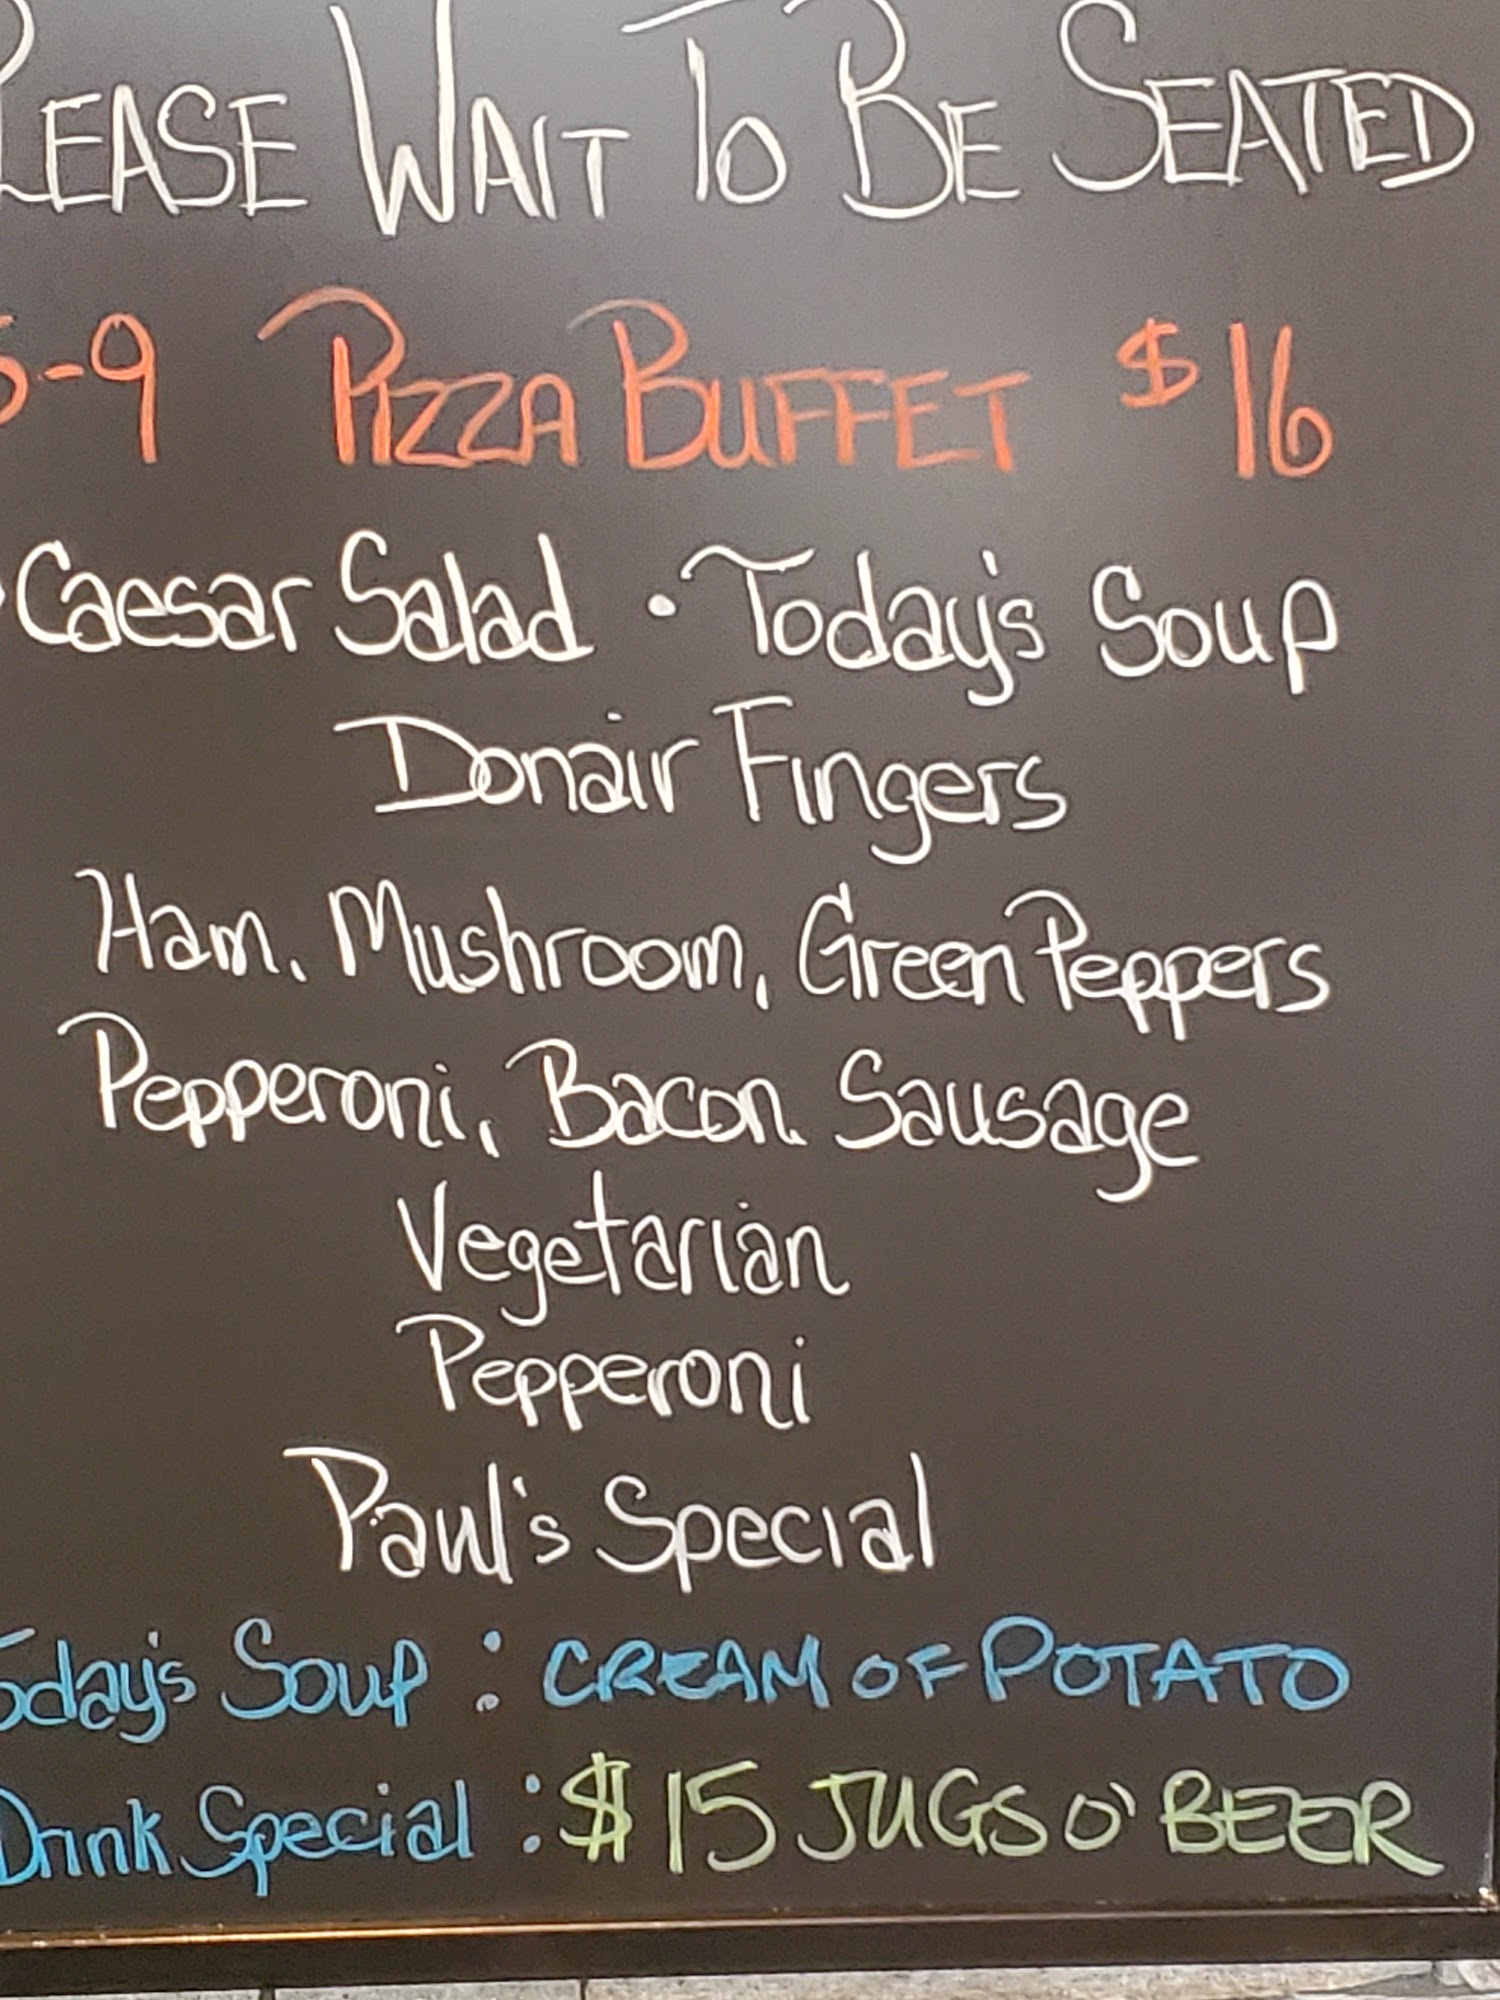 PLEASE WAIT TO BE SEATED
5-9 PIZZA BUFFET $16
Caesar Salad • Today's Soup
Donair Fingers
Ham, Mushroom, Green Peppers
Pepperoni, Bacon, Sausage
Vegetarian
Pepperoni
Paul's Special
Today's Soup : CREAM OF POTATO
Drink Special : $15 JUGS O' BEER